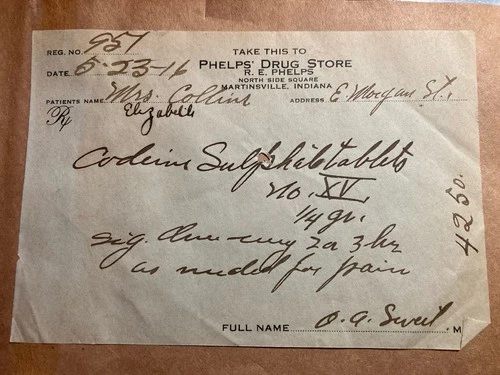 REG. NO. 951
TAKE THIS TO
DATE 5-23-16
PHELPS' DRUG STORE
R. E. PHELPS
NORTH SIDE SQUARE
MARTINSVILLE, INDIANA
PATIENTS NAME Mrs. Collins ADDRESS E Morgan St.
Elizabeth
Rx
Codeine Sulphate tablets
No. XV
1/4 gr.
Sig. One every 2 or 3 hr
as needed for pain
4250.
FULL NAME O. A. M